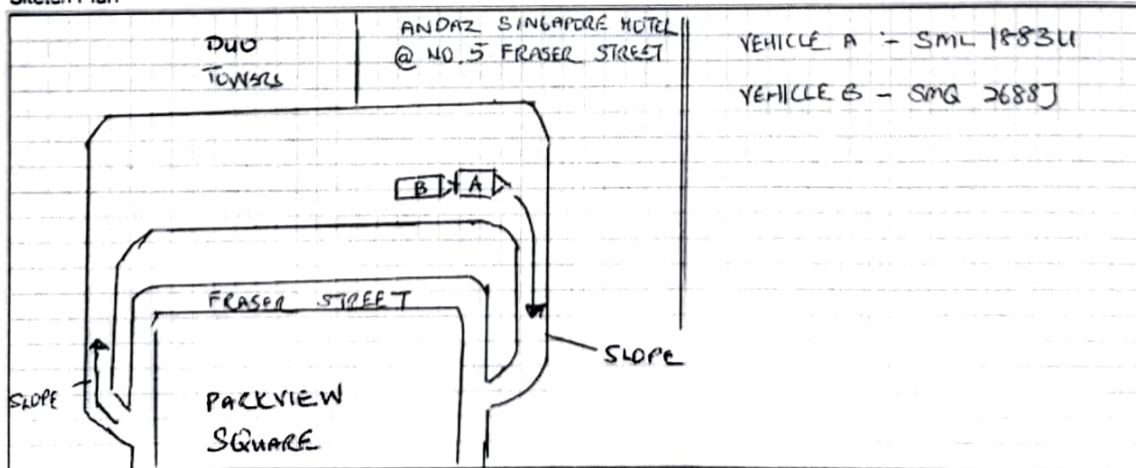 Sketch Plan
DUO
TOWERS
ANDAZ SINGAPORE HOTEL
@ NO.5 FRASER STREET
VEHICLE A :- SML 1883U
VEHICLE B - SMQ 2688J
B A
FRASER STREET
SLOPE
SLOPE
PARKVIEW
SQUARE